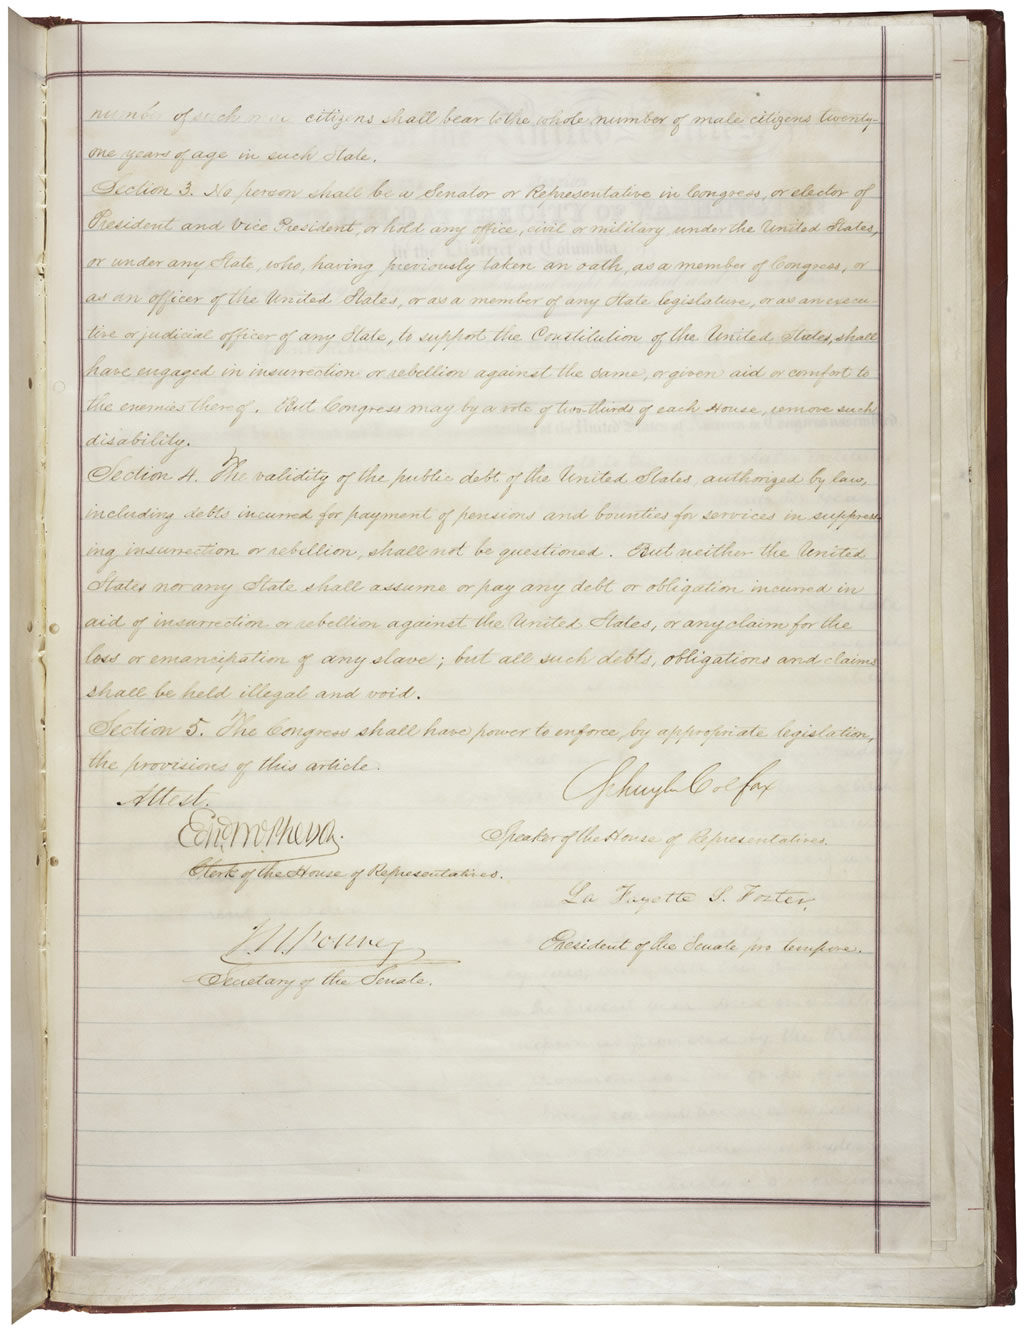 number of such male citizens shall bear to the whole number of male citizens twenty-
one years of age in such State.
Section 3. No person shall be a Senator or Representative in Congress, or elector of
President and Vice President, or hold any office, civil or military, under the United States,
or under any State, who, having previously taken an oath, as a member of Congress, or
as an officer of the United States, or as a member of any State legislature, or as an execu-
tive or judicial officer of any State, to support the Constitution of the United States, shall
have engaged in insurrection or rebellion against the same, or given aid or comfort to
the enemies thereof. But Congress may by a vote of two-thirds of each House, remove such
disability.
Section 4. The validity of the public debt of the United States, authorized by law,
including debts incurred for payment of pensions and bounties for services in suppress-
ing insurrection or rebellion, shall not be questioned. But neither the United
States nor any State shall assume or pay any debt or obligation incurred in
aid of insurrection or rebellion against the United States, or any claim for the
loss or emancipation of any slave; but all such debts, obligations and claims
shall be held illegal and void.
Section 5. The Congress shall have power to enforce, by appropriate legislation,
the provisions of this article.
Attest.
Schuyler Colfax
Edwd. McPherson.
Speaker of the House of Representatives.
Clerk of the House of Representatives.
La Fayette S. Foster,
J. W. Forney
President of the Senate pro tempore.
Secretary of the Senate.